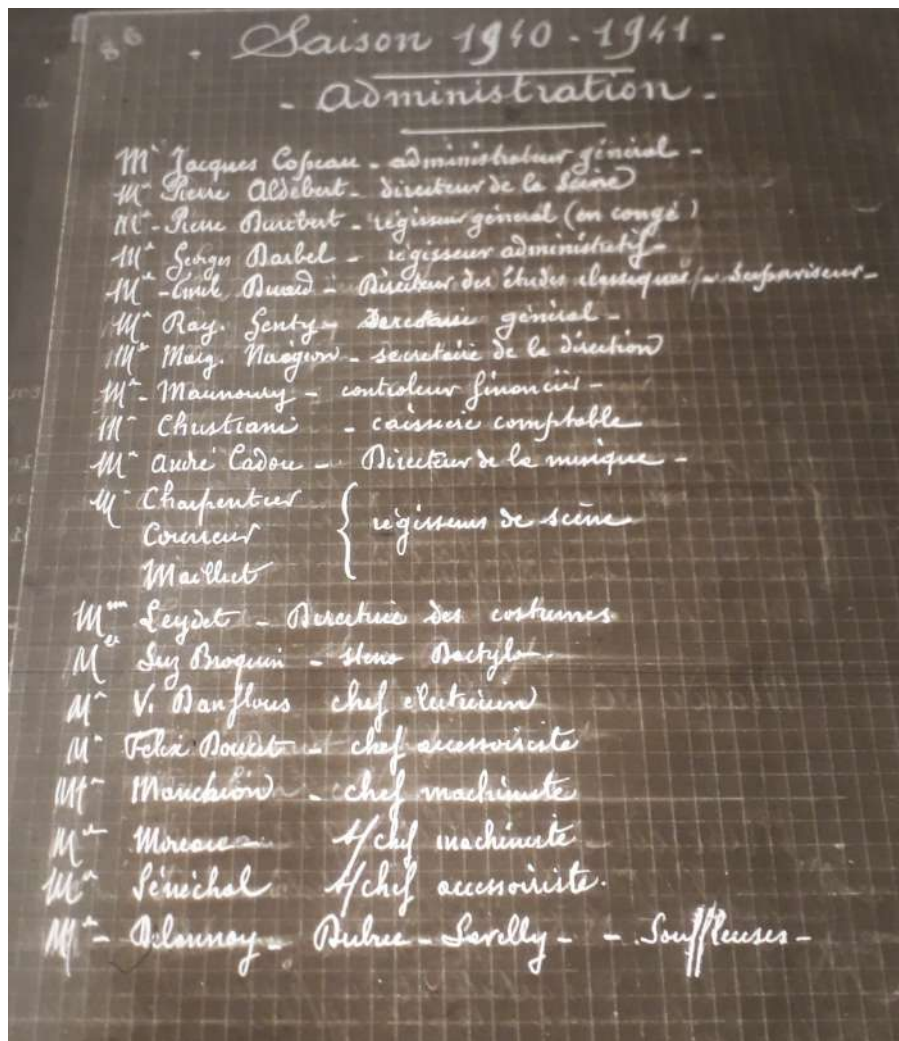 86
Saison 1940-1941-
- Administration -
Mr Jacques Copeau - administrateur général -
Mr Pierre Aldebert - directeur de la Scène
Mr - Pierre régisseur général (en congé)
Mr Georges Barbel - régisseur administratif -
Mr - Emile - Directeur des études classiques - Superviseur -
Mr Ray. Genty - Secretaire général -
Marg. - secretaire de la direction
Mr - Maunoury - controleur financier -
Mr Christiani - caissière comptable
Mr André Cadou - Directeur de la musique -
M Charpentier
Couvreur { régisseurs de scène
Maillet
Mme Leydet - Directrice des costumes
Suz Broquin - steno Dactylo
Mr V. Danflous chef électricien
Mr Felix Doucet - chef accessoiriste
Mr - chef machiniste
Mr Moreau s/chef machiniste
Mr Sénéchal s/chef accessoiriste.
Delaunay - - - Souffleuses -